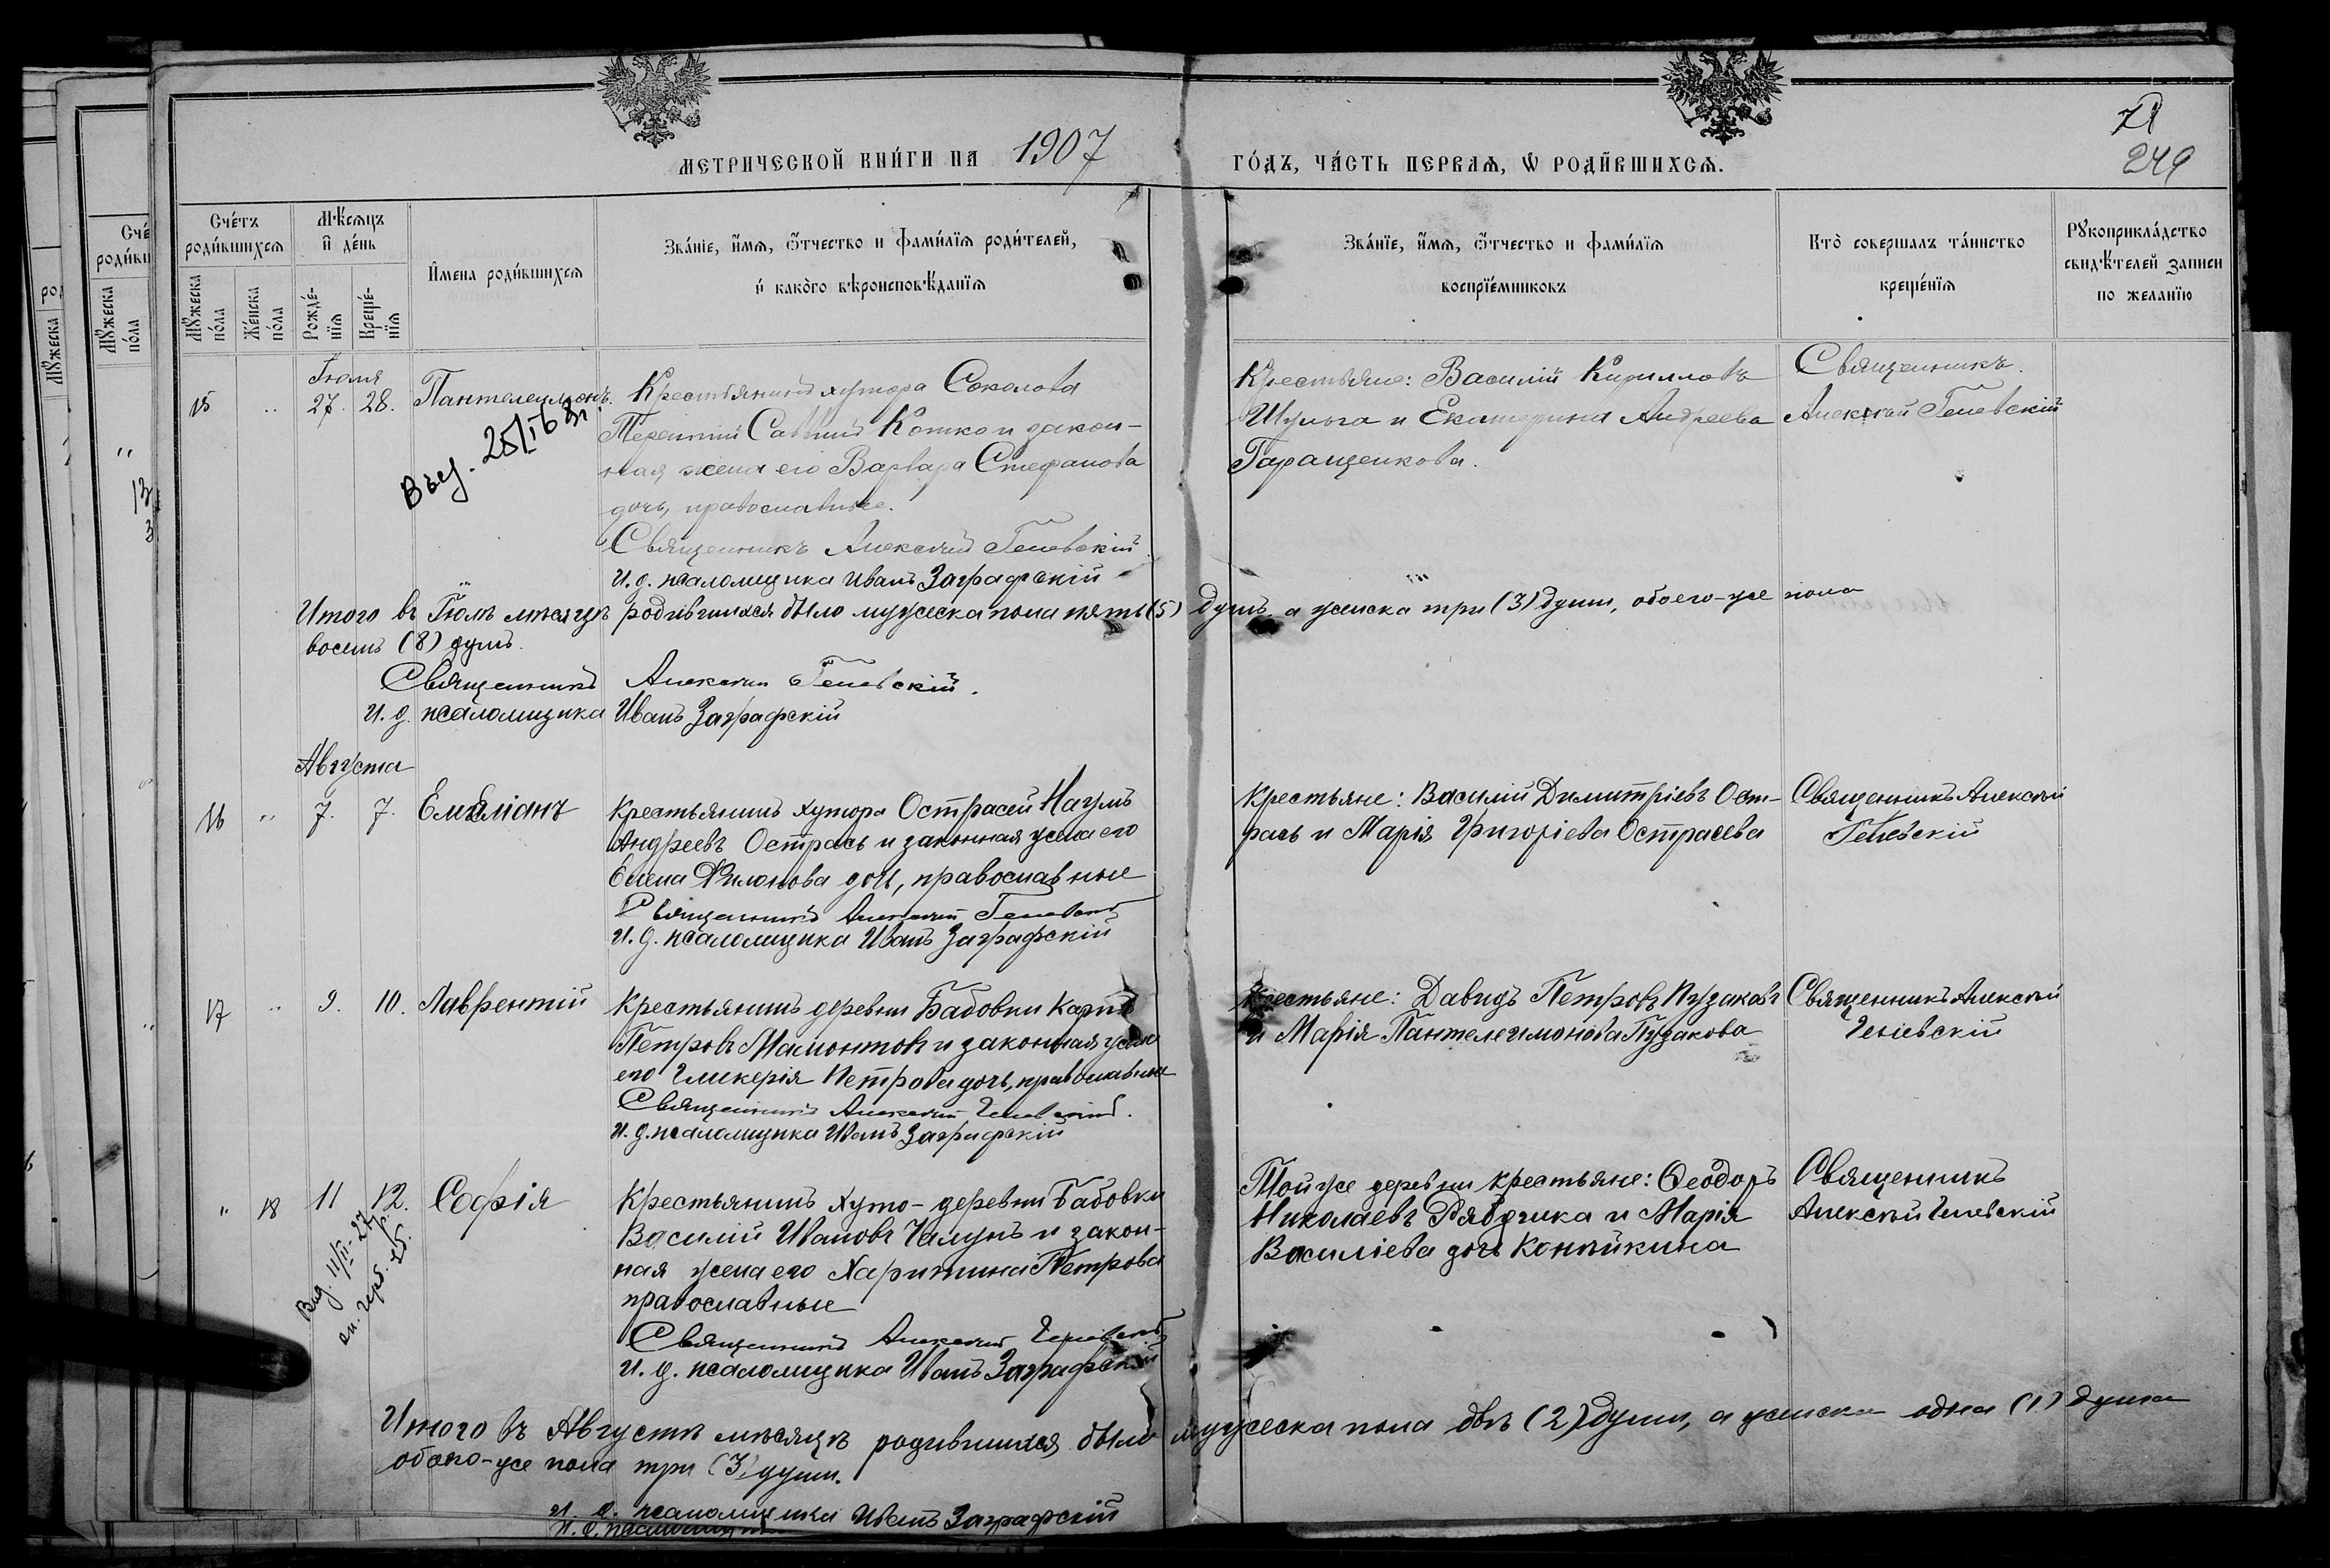 МЕТРИЧЕСКОЙ КНИ́ГИ НА 1907
ГО́ДЪ, ЧА́СТЬ ПЕРВАЯ, Ѡ РОДИ́ВШИХСЯ.
71
249
Сче́тъ
роди́вшихся
Мѣ́сяцъ
и де́нь
Мꙋ́жеска
по́ла
Же́нска
по́ла
Рожде́-
нїя
Креще́-
нїя
И́мена роди́вшихся
Зва́нїе, и́мя, ѻ́тчество и фами́лїя роди́телей,
и како́го вѣроисповѣ́данїя
Зва́нїе, и́мя, ѻ́тчество и фами́лїя
воспрїе́мниковъ
Кто̀ совершалъ та́инство
креще́нїя
Рꙋкоприкла́дство
свидѣ́телей записи
по желанїю
Іюля
15 „ 27. 28. Пантелеимонъ.
Крестьянинъ хутора Соколова
Терентій Саввинъ Кошко и закон-
ная жена его Варвара Стефанова
дочь, православные.
Священникъ Алексѣй Геневскій
И. д. псаломщика Иванъ Заграфскій
Крестьяне: Василій Кирилловъ
Шульга и Екатерина Андреева
Гаращенкова.
Священникъ.
Алексѣй Геневскій
Итого въ Іюлѣ мѣсяцѣ родившихся было мужеска пола пять (5) душъ, а женска три (3) души, обоего-же пола
восемь (8) душъ.
Священникъ Алексѣй Геневскій.
И. д. псаломщика Иванъ Заграфскій
Августа
16 „ 7. 7. Емиліанъ
Крестьянинъ хутора Острасей Наумъ
Андреевъ Острась и законная жена его
Елена Филонова дочь, православные
Священникъ Алексѣй Геневскій
И. д. псаломщика Иванъ Заграфскій
Крестьяне: Василій Димитріевъ Ост-
рась и Марія Григоріева Острасева
Священникъ Алексѣй
Геневскій
17 „ 9. 10. Лаврентій
Крестьянинъ деревни Бабовки Карпъ
Петровъ Мамонтовъ и законная жена
его Гликерія Петрова дочь, православные
Священникъ Алексѣй Геневскій.
И. д. псаломщика Иванъ Заграфскій
Крестьяне: Давидъ Петровъ Пузаковъ
и Марія Пантелеимонова Пузакова
Священникъ Алексѣй
Геневскій
„ 18 11 12. Софія
Крестьянинъ хуто- деревни Бабовки
Василій Ивановъ Чалунъ и закон-
ная жена его Харитина Петрова
православные
Священникъ Алексѣй Геневскій
И. д. псаломщика Иванъ Заграфскій
Той же деревни крестьяне: Ѳеодоръ
Николаевъ Рябочка и Марія
Василіева дочь Копѣйкина
Священникъ
Алексѣй Геневскій
Итого въ Августѣ мѣсяцѣ родившихся было мужеска пола двѣ (2) души, а женска одна (1) душа
обоего-же пола три (3) души.
И. д. псаломщика Иванъ Заграфскій